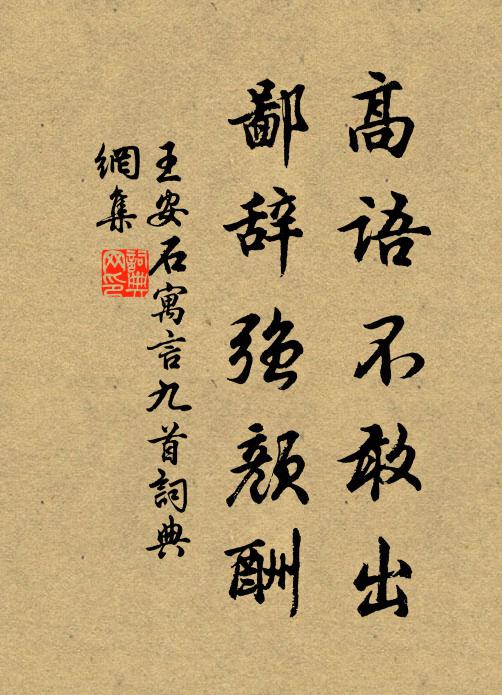 高语不敢出
鄙辞强颜酬
王安石寓言九首詞典
網集
詞典
网印